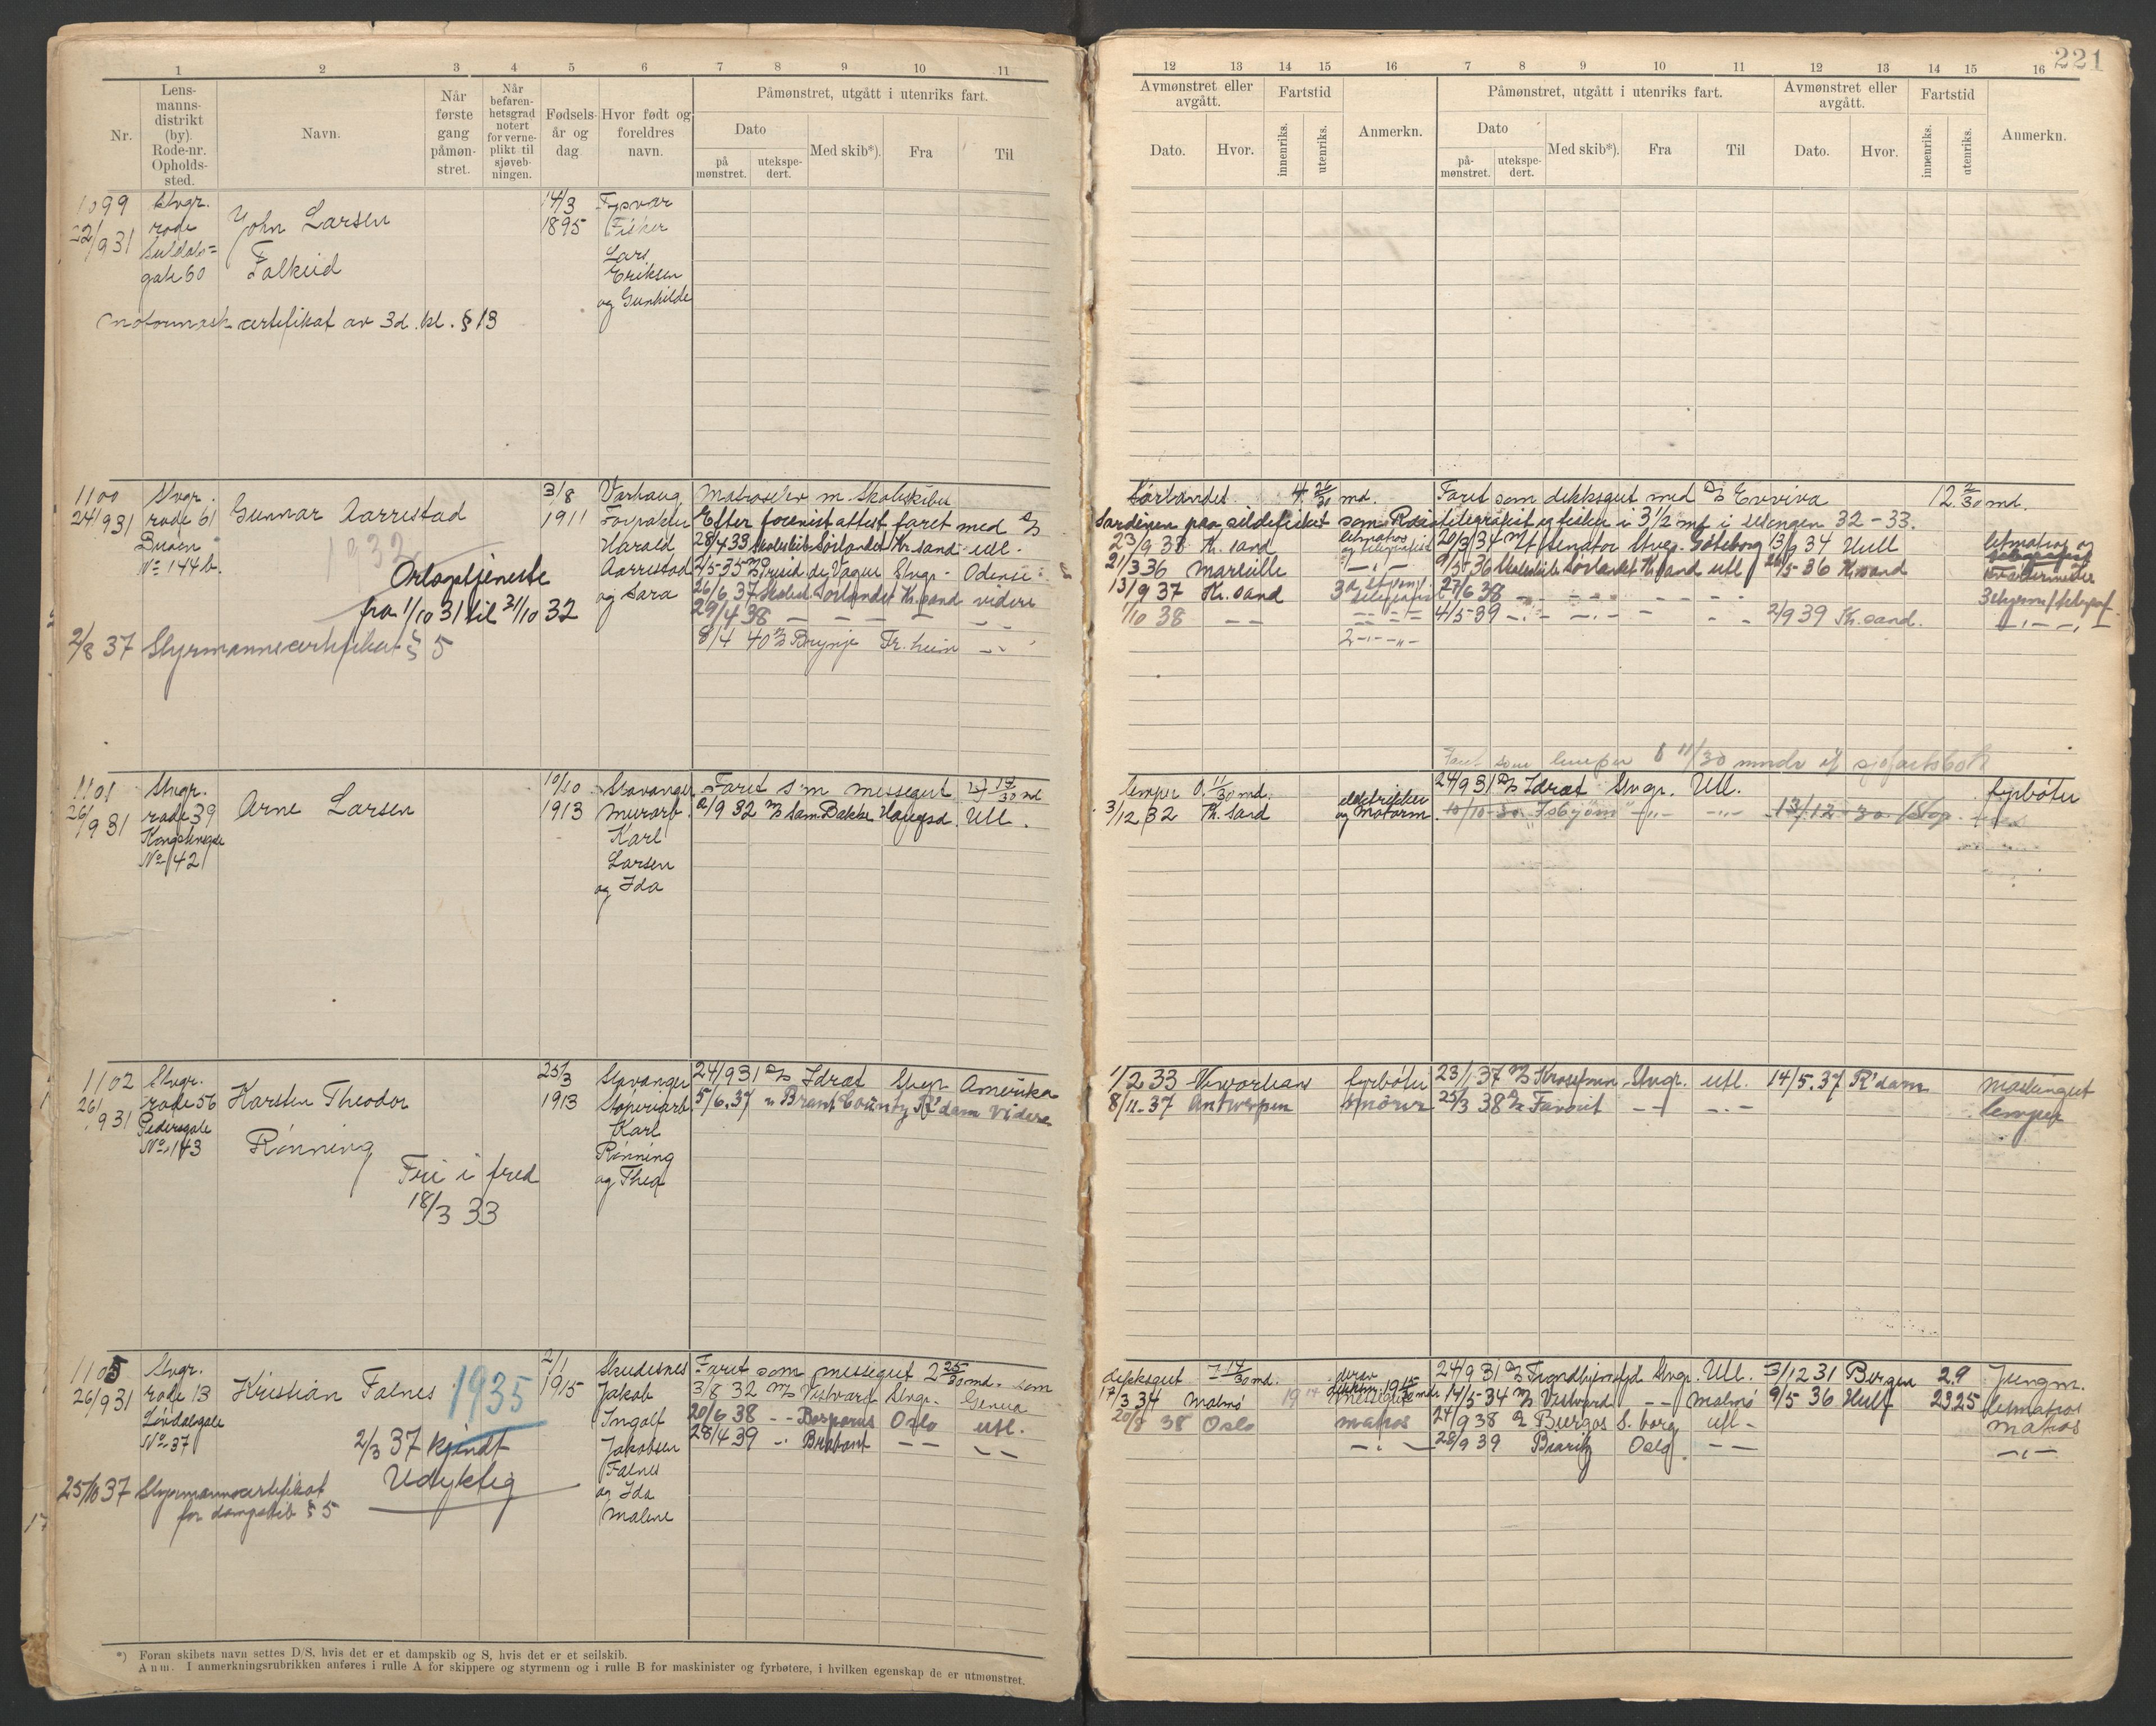 221
1 2 3 4 5 6 7 8 9 10 11
Nr.
Lens-
manns-
distrikt
(by).
Rode-nr.
Opholds-
sted.
Navn.
Når
første
gang
påmøn-
stret.
Når
befaren-
hetsgrad
notert
for verne-
plikt til
sjøveb-
ningen.
Fødsels-
år og
dag.
Hvor født og
foreldres
navn.
Påmønstret, utgått i utenriks fart.
Dato
på
mønstret.
utekspe-
dert.
Med skib*).
Fra
Til
12 13 14 15 16 7 8 9 10 11 12 13 14 15 16
Avmønstret eller
avgått.
Dato.
Hvor.
Fartstid
innenriks.
utenriks.
Anmerkn.
Påmønstret, utgått i utenriks fart.
Dato
på-
mønstret.
utekspe-
dert.
Med skib*).
Fra
Til
Avmønstret eller
avgått.
Dato.
Hvor.
Fartstid
innenriks.
utenriks.
Anmerkn.
1099
22/931
Stvgr.
rode
Suldals=
gate 60
John Larsen
Falkeid
14/3
1895
Tysvær
Lars
Eriksen
og Gunhilde
Motormask. certifikat av 3d. kl. § 13
1100
24/931
Stvgr.
rode 61
Buøen
No 144b.
Gunnar Aarrestad
1932
Orlogstjeneste
fra 1/10 31 til 31/10 32
2/8 37 Styrmannscertifikat § 5
3/8
1911
Varhaug
Forpakter
Harald
Aarrestad
og Sara
Matroselev m. Skoleskibet
Efter forevist attest faret med D/S
28/4 33 Skoleskib Sørlandet Kr.sand utl.
2/5-35 M/S Presid. de Vogue Stvgr - Odense
26/6 37 Skolesk Sørlandet Kr.sand videre
29/4 38 — — — — —
8/4 40 M/S Brynje Tr.heim —
Sørlandet 4 26/30 md. Faret som dekksgut med D/S Envviva 12 2/30 md.
Sardinen paa sildefisket som Radiotelegrafist og fisker i 3 1/2 md i sesongen 32-33.
23/9 33 Kr. sand letmatros og telegrafist 20/3 34 M/T Senator Stvgr. Göteborg 13/9 34 Hull letmatros og
21/3 36 Marseille 9/5-36 Skoleskib Sørlandet Kr.sand utl Kr.sand kvartermester
13/9 37 Kr. sand 27/6 38 — — — 3 styrm/telegraf.
1/10 38 — — 4/5-39 — — 2/9 39 Kr.sand. — —
1101
26/931
Stvgr.
rode 39
No 42
Arne Larsen
10/10
1913
Stavanger
murarb.
Karl
Larsen
og Ida
Faret s'm messegut 17/30 md
2/9 32 M/S Sam. Bakke Haugsd. Utl.
Faret som lemper 8 11/30 mndr if sjøfartsbok
lemper 0. 11/30 md. 24/9 31 D/S Idræt Stvgr. Utl. fyrbøter
3/12 32 Kr. Sand elektriker og Motorm 10/10-30 "Isbjörn" — — 13/12-30
1102
26/931
Stvgr.
rode 56
Pedersgate
No. 143
Karsten Theodor
Rønning
Fri i fred
18/3 33
25/3
1913
Stavanger
Støperiarb
Karl
Rønning
og Thea
24/9 31 D/S Idræt Stvgr Amerika
5/6.37 " Brant County R'dam videre
1/2 33 Neworleans fyrbøter 23/1 37 M/S Krosfonn Stvgr. utl. 14/5.37 R'dam maskingut
8/11-37 Antwerpen smører 25/3 38 D/S Favorit — — lemper
1103
26/931
Stvgr.
rode 13
Lindalsgate
No 37
Kristian Falnes 1935
2/3 37 kjendt
Udyktig
25/10 37 Styrmannscertifikat
for dampskib § 5
2/1
1915
Skudesnes
Jakob
Ingolf
Jakobsen
Falnes
og Ida
Malene
Faret som messegut 2 25/30 md. som
3/8 32 M/S Vistvard Stvgr. Genua
20/6 38 - - Bosporus Oslo utl.
28/4 39 - Brabant — — —
dekksgut 7 14/30 md. derav 24/9 31 D/S Trondhjemsfjd Stvgr. Utl. 3/12 31 Bergen 2,9 Jungm.
17/3 34 Malmø 14/5-34 M/S Vistvard — Malmø 9/5 36 Hull 23.25 letmatros
20/8 38 Oslo matros 24/9 38 Burgos S. borg utl - matros
— — 28/9 39 Biaritz Oslo — — —
*) Foran skibets navn settes D/S, hvis det er et dampskib og S, hvis det er et seilskib.
Anm. I anmerkningsrubrikken anføres i rulle A for skippere og styrmenn og i rulle B for maskinister og fyrbøtere, i hvilken egenskap de er utmønstret.